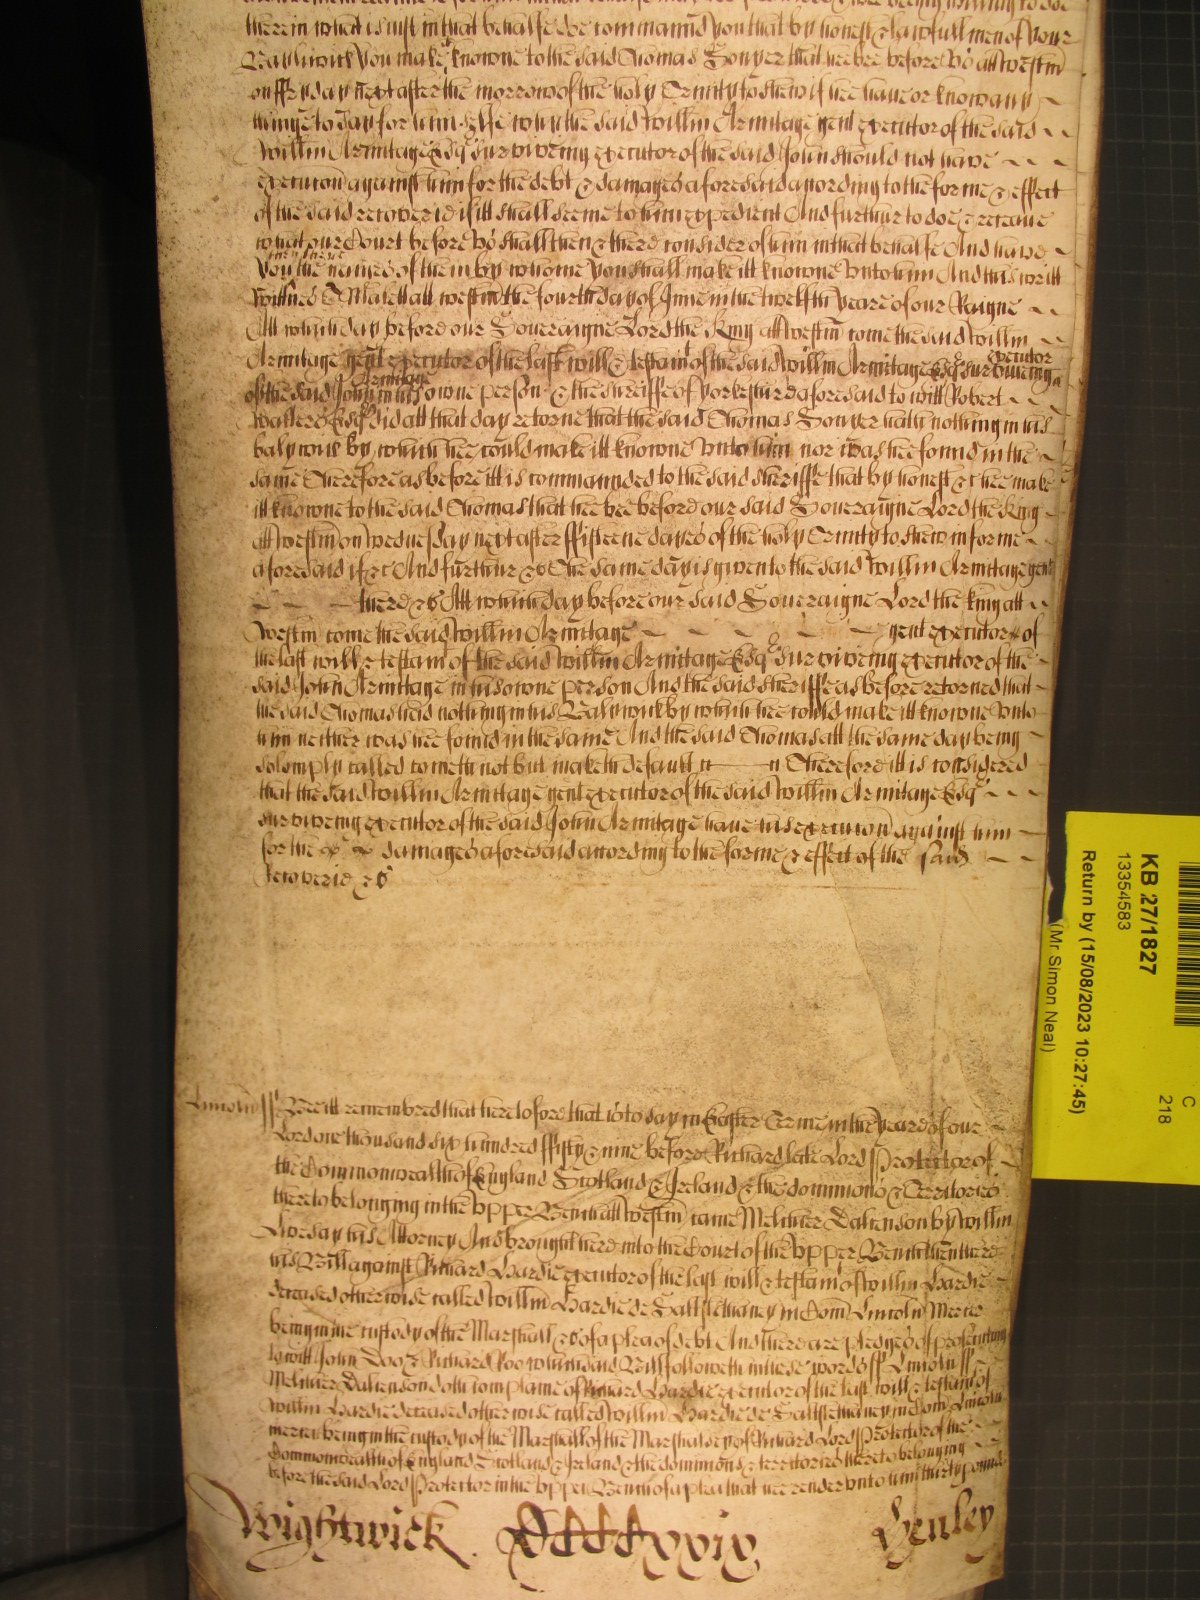 therein what is just in that behalfe doe command you that by honest & lawfull men of your
Bayliwick you make knowne to the said Thomas Sonyer that hee bee before us att Westm
on ffryday next after the morrow of the holy Trinity to shew if hee have or know any
thinge to say for him selfe why the said Willm Armitage gent executor of the said
Willm Armitage Esqr surviveing executor of the said John should not have
execucon against him for the debt & damages aforesaid according to the forme & effect
of the said recoverie if itt shall seeme to him expedient And further to doe & receave
what our Court before us shall then & there consider of him in that behalfe And have
then there
you the names of them by whome you shall make itt knowne unto him And this writt
Wittnes T Malett att Westm the fourth day of June in the twelfth yeare of our Raigne
Att which day before our Soveraigne Lord the King att Westm come the said Willm
Armitage gent executor of the last will & testamt of the said Willm Armitage Esqr surviveing executor
of the said John Armitage in his owne person & the sheriffe of Yorkeshire aforesaid to witt Robert
Walters Esqr did att that day retorne that the said Thomas Sonyer hath nothing in his
balywick by which hee could make itt knowne unto him nor was hee found in the
same Therefore as before itt is commanded to the said sheriffe that by honest &c hee make
itt knowne to the said Thomas that hee bee before our said Soveraigne Lord the King
att Westm on Wednesday next after ffifteene dayes of the holy Trinity to shew in forme
aforesaid if &c And further &c The same day is given to the said Willm Armitage gent
there &c Att which day before our said Soveraigne Lord the King att
Westm come the said Willm Armitage gent executor of
the last will & testam of the said Willm Armitage Esqr surviveing executor of the
said John Armitage in his owne person And the said sheriffe as before retorned that
the said Thomas had nothing in his Balywick by which hee could make itt knowne unto
him neither was hee found in the same And the said Thomas att the same day being
solemply called cometh not but maketh default Therefore itt is considered
that the said Willm Armitage gent executor of the said Willm Armitage Esqr
surviveing executor of the said John Armitage have his execucon against him
for the damages aforesaid according to the forme & effect of the said
recoverie &c
Lincoln ss Bee itt remembred that heretofore that is to say in Easter Terme in the yeare of our
Lord one thousand six hundred ffifty & nine before Richard late Lord Protector of
the Commonwealth of England Scotland & Ireland & the dominions & Territories
thereto belonging in the Upper Bench att Westm came Melicher Dalienson by Willm
Loveday his Attorney And brought here into the Court of the Upper Bench then there
his Bill against Richard Hardie executor of the last will & testamt of Willm Hardie
deceased otherwise called Willm Hardie de in Com Lincoln Mercer
being in the custody of the Marshall &c of a plea of debt And there are pledges of prosecuting
to witt John Doo & Richard Roo which said Bill followeth in these words ss Lincoln ss
Melicher Dalienson doth complaine of Richard Hardie executor of the last will & testamt of
Willm Hardie deceased otherwise called Willm Hardie de in Com Lincoln
mercer being in the custody of the Marshall of the Marshalsey of Richard Lord Protector of the
Commonwealth of England Scotland & Ireland & the dominions & territories thereto belonging
before the said Lord Protector in the upper Bench of a plea that hee render unto him thirty pounds
Wightwick CCCCxxix Henley
KB 27/1827
13354583
Return by (15/08/2023 10:27:45)
(Mr Simon Neal)
C
218